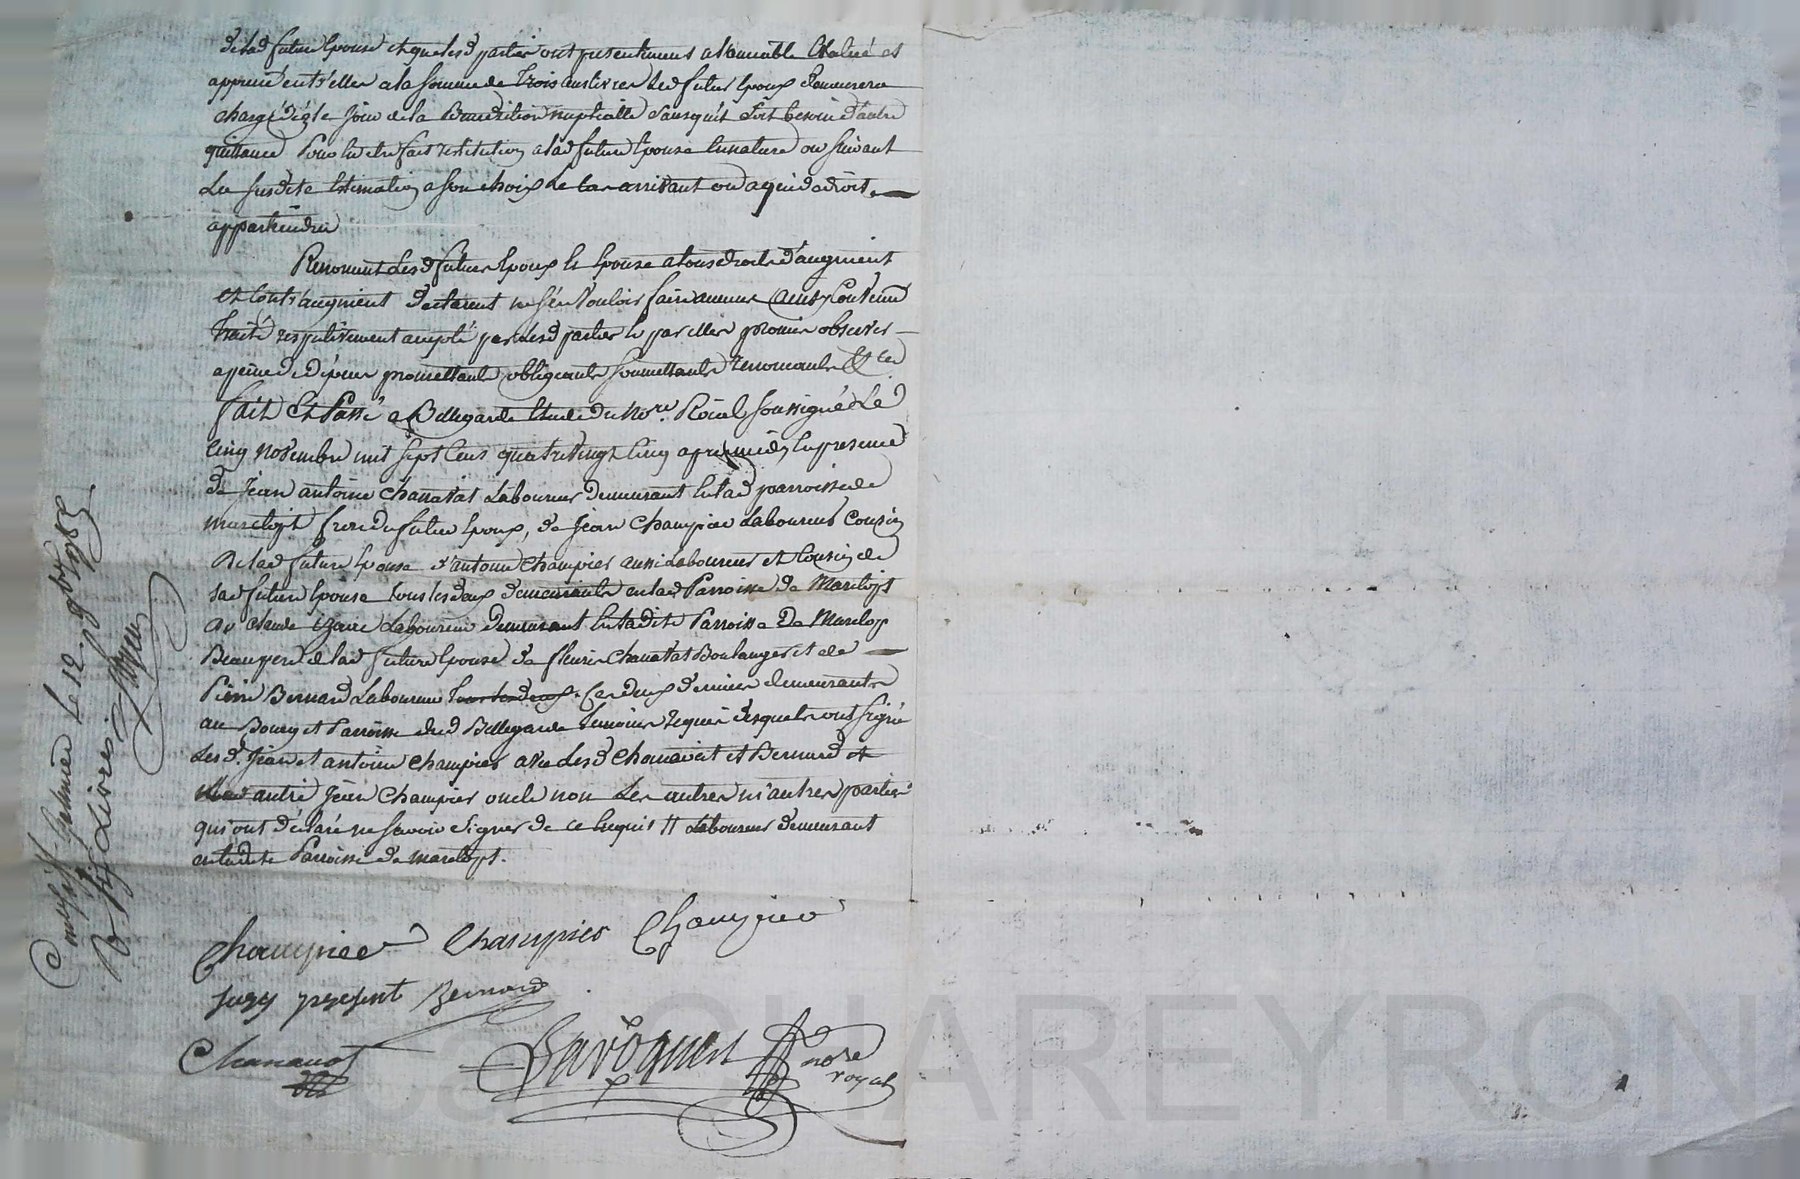 de lad future Epouse et que lesd parties ont presentement a l'amiable Evalué et
apprecié entr'elles a la somme de Trois cens livres led futur Epoux demeurera
chargé dez le Jour de la Benediction nuptialle sans qu'il soit besoin d'autre
quittance Pour en etre fait restitution a lad future Epouse En nature ou suivant
La susdite Estimation a son choix Le cas arrivant ou a qui de droit
appartiendra
Renoncent Lesd futurs Epoux et Epouse a tous droits d'augment
et Contr'augment declarent ne s'en Vouloir faire aucuns ainsy Convenu
Traité respectivement accepté par Lesd parties et par elles promis observer
a peine de depens promettants obligeants soumettants renonceants &c
fait Et Passé a Bellegarde Etude du No.re Roial soussigné Le
Cinq Novembre mil sept Cens quatre vingt Cinq apres midy En presence
de Jean antoine Chanavat Laboureur demeurant En lad parroisse de
Marclopt frere du futur Epoux, de Jean Champier Laboureur Cousin
de lad future Epouse d'antoine Champier aussi Laboureur et Cousin de
lad future Epouse tous les deux demeurants en lad Parroisse de Marclopt
de Claude Laboureur demeurant En ladite Parroisse de Marclop
Beaupere de lad future Epouse de fleurie Chanavat Boulanger et de
Pierre Bernard Laboureur tous les deux. Ces deux derniers demeurants
au Bourg et Parroisse dud Bellegarde Temoins requis desquels ont signé
Lesd. Jean et antoine Champier avec Lesd Chanavat et Bernard et
autre Jean Champier oncle non Les autres ni autres parties
qui ont déclaré ne savoir signer de ce Enquis // Laboureur demeurant
en ladite Parroisse de marclopt.
Champier Champier Champier
present Bernard
Chanavat
no.re
royal
Controllé le 12 9bre 1785
R livres